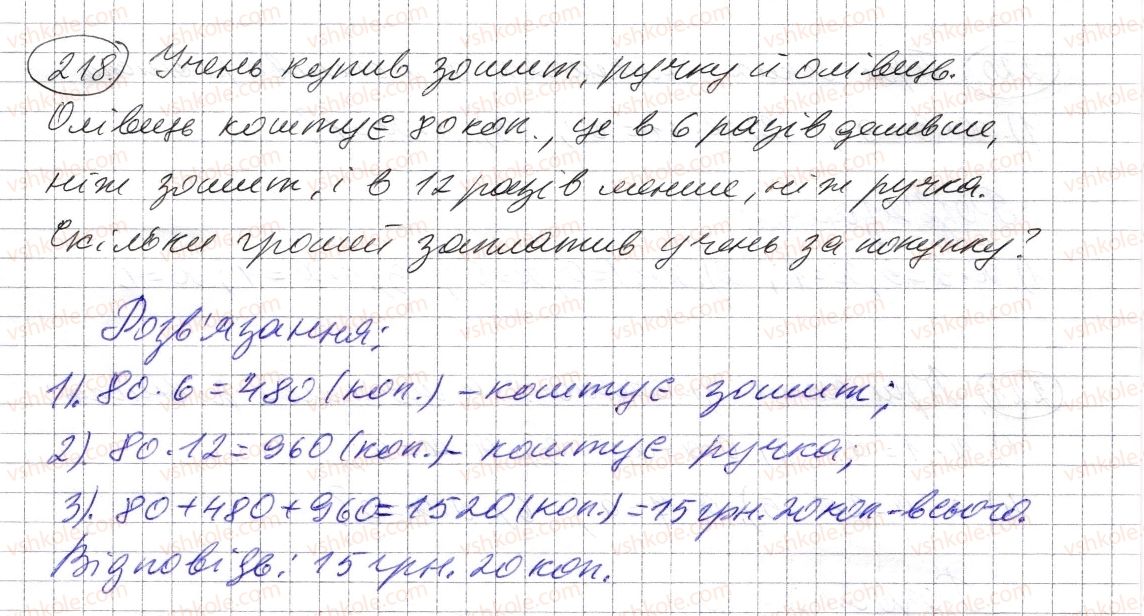 218. Учень купив зошит, ручку й олівець.
Олівець коштує 80 коп., це в 6 разів дешевше,
ніж зошит, і в 12 разів менше, ніж ручка.
Скільки грошей заплатив учень за покупку?
Розв'язання:
1). 80 · 6 = 480 (коп.) - коштує зошит;
2). 80 · 12 = 960 (коп.) - коштує ручка;
3). 80 + 480 + 960 = 1520 (коп.) = 15 грн. 20 коп - всього.
Відповідь: 15 грн. 20 коп.
vshkole.com